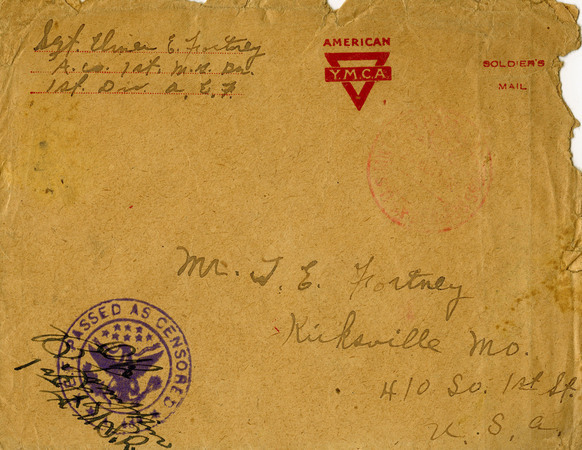 Sgt. Elmer E. Fortney
A. Co. 1st. M. G. Bn.
1st. Div. A. E. F.
AMERICAN
Y.M.C.A.
SOLDIER'S
MAIL
Mr. T. E. Fortney
Kirksville Mo.
410 So. 1st St.
U. S. A.
PASSED AS CENSORED